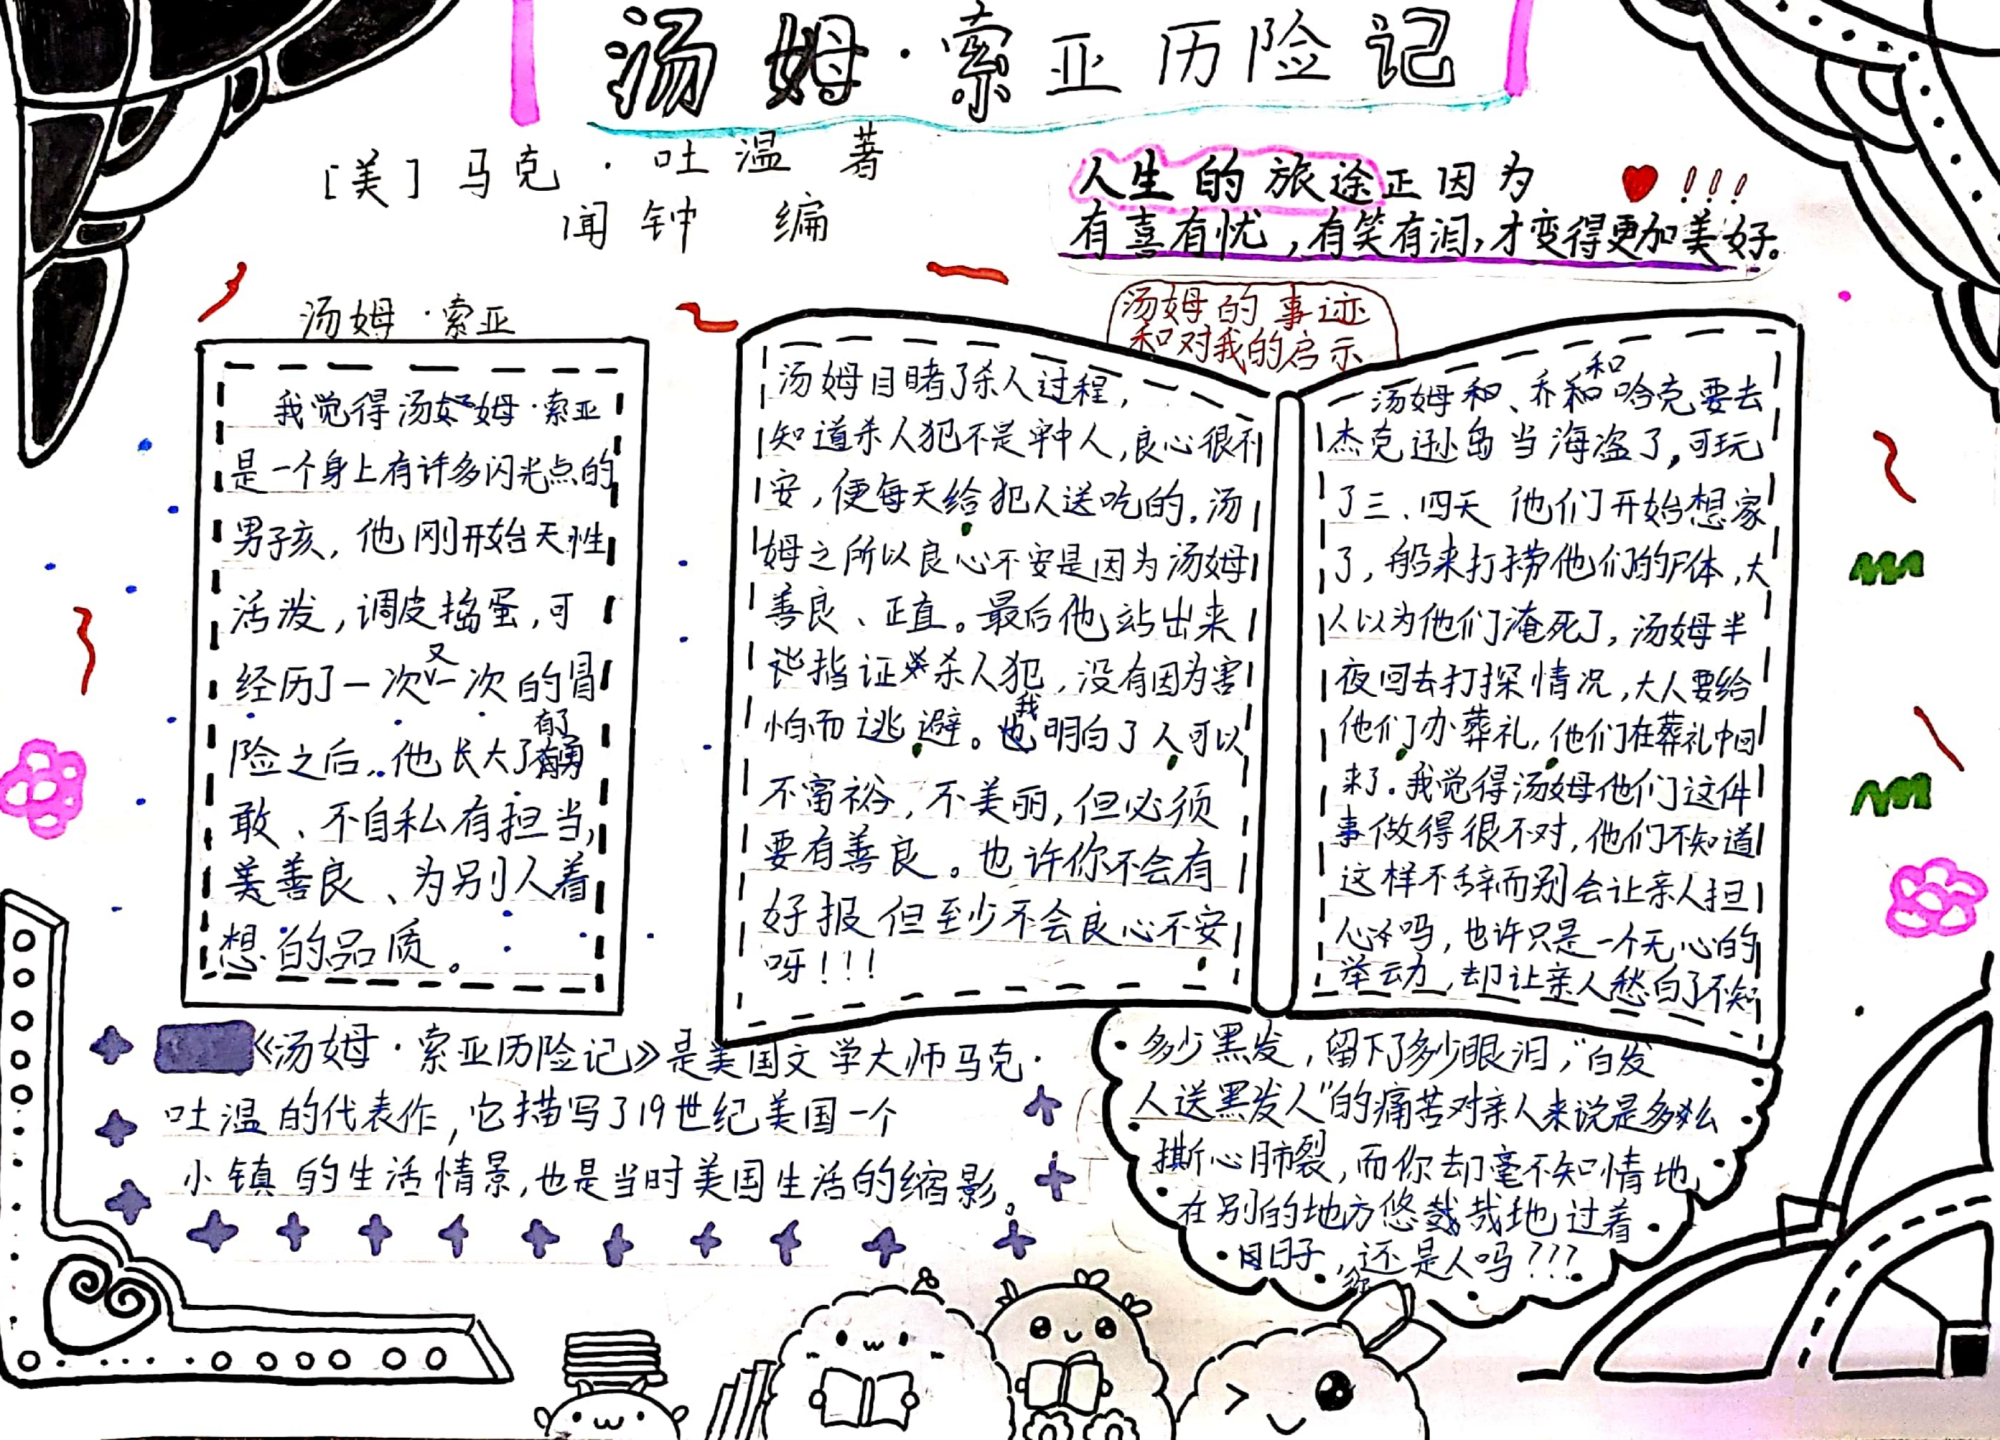 汤姆·索亚历险记
[美]马克·吐温 著
闻钟 编
人生的旅途正因为
有喜有忧，有笑有泪，才变得更加美好。
汤姆·索亚
我觉得汤姆·索亚
是一个身上有许多闪光点的
男子孩，他刚开始天性
活泼，调皮捣蛋，可
经历了一次又一次的冒
险之后，他长大了有了勇
敢、不自私有担当，
善良、为别人着
想的品质。
汤姆的事迹
和对我的启示
汤姆目睹了杀人过程，
知道杀人犯不是 人，良心很不
安，便每天给犯人送吃的。汤
姆之所以良心不安是因为汤姆
善良、正直。最后他站出来
指证杀人犯，没有因为害
怕而逃避。我也明白了人可以
不富裕，不美丽，但必须
要有善良。也许你不会有
好报但至少不会良心不安
呀！！！
汤姆和、乔和哈克要去
杰克逊岛当海盗了，可玩
了三、四天 他们开始想家
了，船来打捞他们的尸体，大
人以为他们淹死了，汤姆半
夜回去打探情况，大人要给
他们办葬礼，他们在葬礼中回
来了。我觉得汤姆他们这件
事做得很不对，他们不知道
这样不辞而别会让亲人担
心吗，也许只是一个无心的
举动，却让亲人愁白了不知
多少黑发，留下了多少眼泪，“白发
人送黑发人”的痛苦对亲人来说是多么
撕心肺裂，而你却毫不知情地，
在别的地方悠哉哉地过着
日子，你还是人吗？？？
《汤姆·索亚历险记》是美国文学大师马克·
吐温的代表作，它描写了19世纪美国一个
小镇的生活情景，也是当时美国生活的缩影。